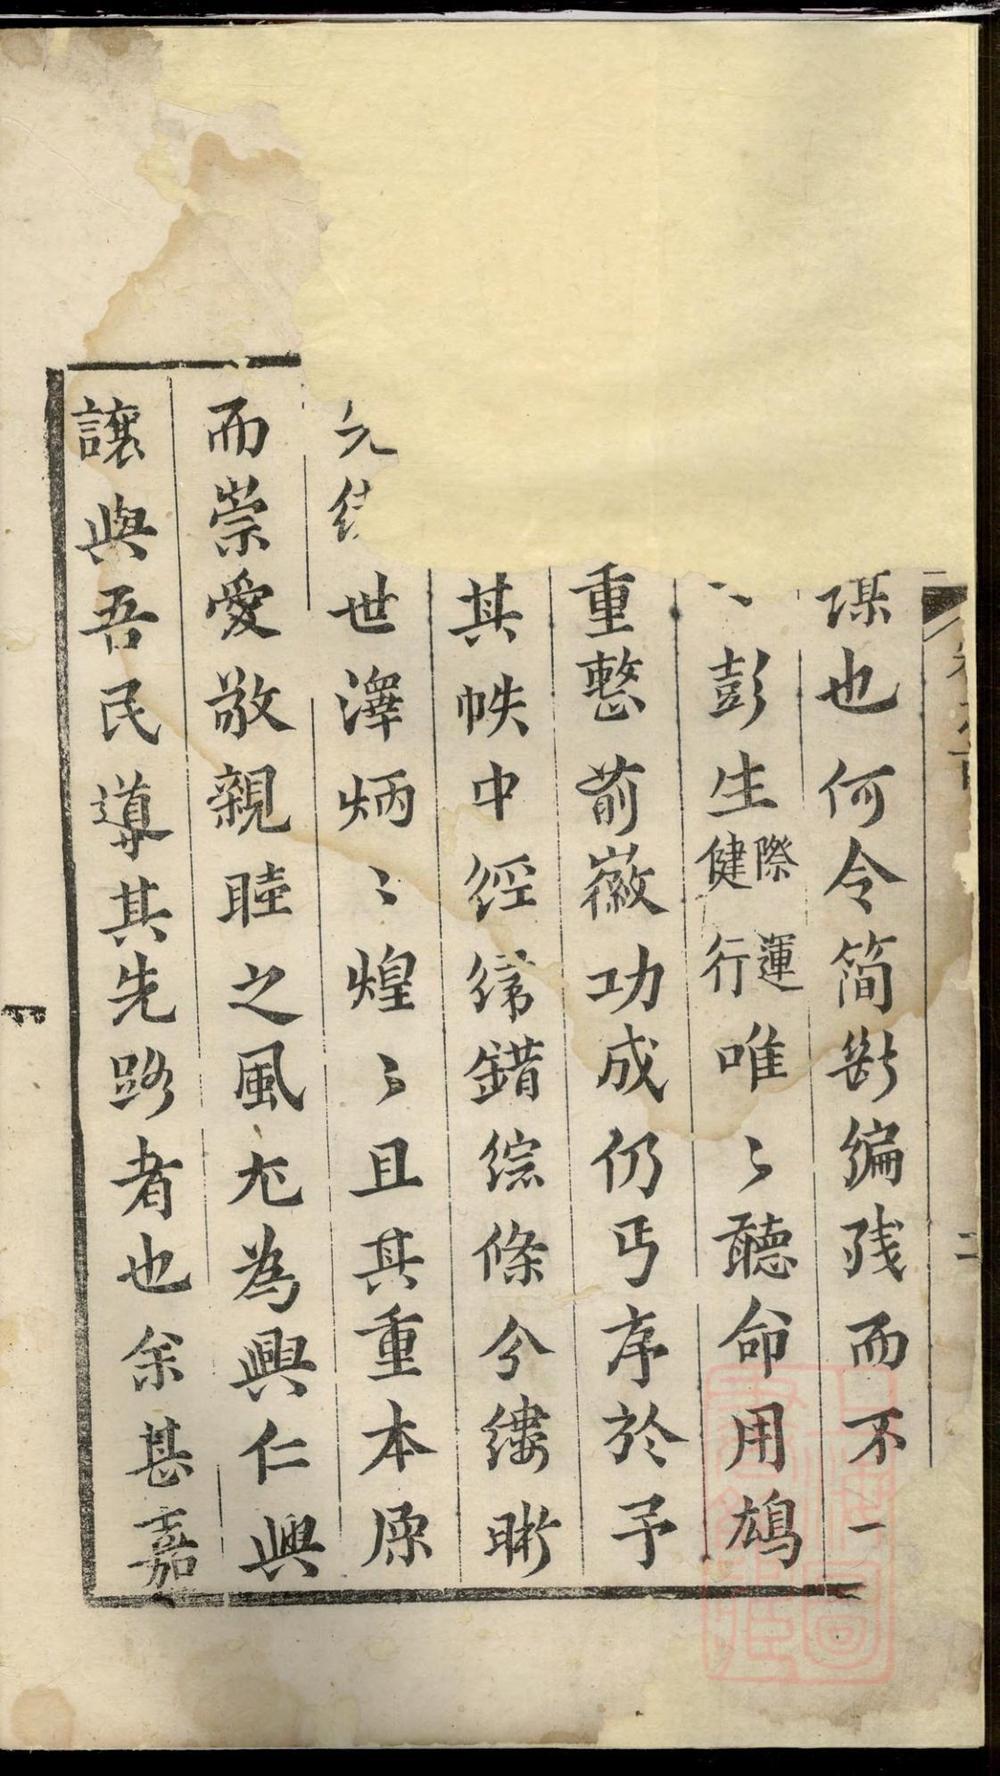 謀也何令简断編残而不一
彭生際運健行唯〻聽命用鳩
重整前徽功成仍丐序於予
其帙中經緯錯綜條分縷晰
世澤炳〻煌〻且其重本原
而崇愛敬親睦之風尤為興仁興
讓與吾民導其先路者也余甚嘉
二